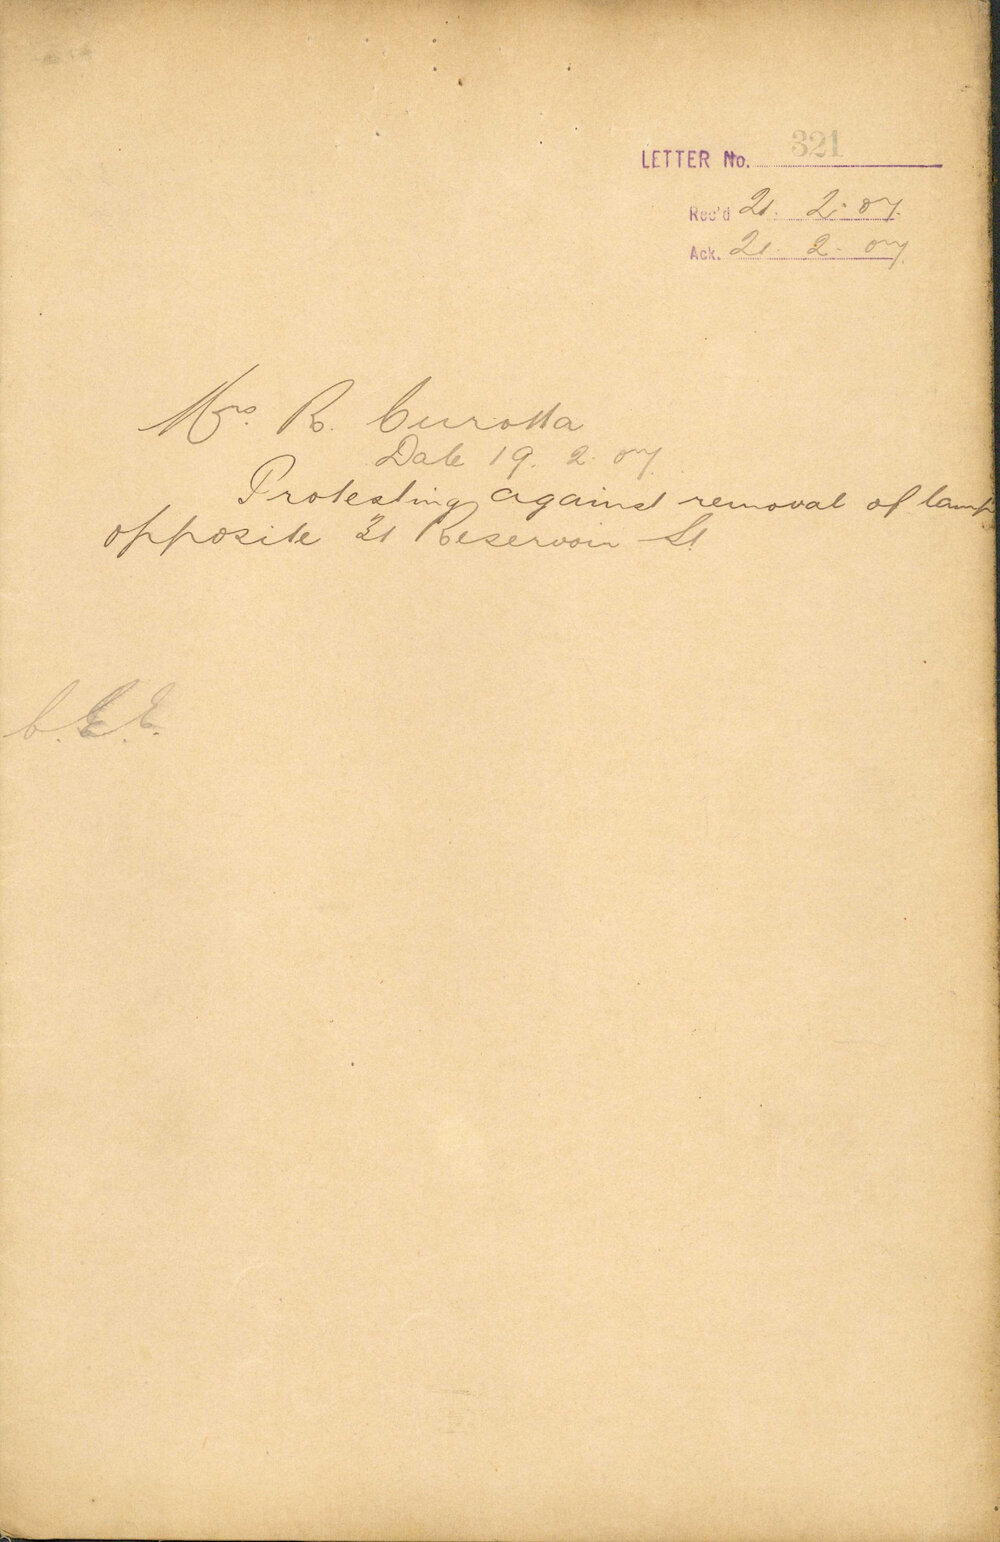 LETTER No. 321
Rec'd 21. 2. 07.
Ack. 21. 2. 07.
Mrs. R. Curotta
Date 19. 2. 07.
Protesting against removal of lamp
opposite 31 Reservoir St
C.E.E.